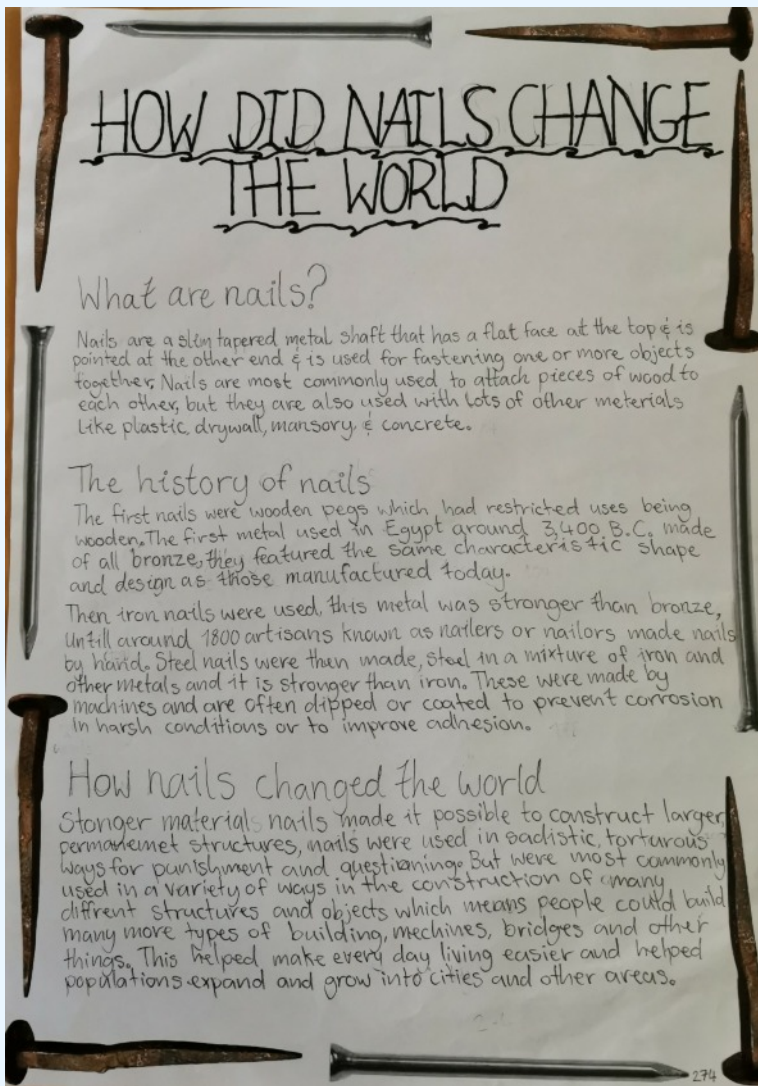 HOW DID NAILS CHANGE
THE WORLD
What are nails?
Nails are a slim tapered metal shaft that has a flat face at the top & is
pointed at the other end & is used for fastening one or more objects
together. Nails are most commonly used to attach pieces of wood to
each other, but they are also used with lots of other meterials
like plastic, drywall, mansory & concrete.
The history of nails
The first nails were wooden pegs which had restricted uses being
wooden. The first metal used in Egypt around 3,400 B.C. made
of all bronze, they featured the same characteristic shape
and design as those manufactured today.
Then iron nails were used, this metal was stronger than bronze,
untill around 1800 artisans known as nailers or nailors made nails
by hand. Steel nails were then made, steel in a mixture of iron and
other metals and it is stronger than iron. These were made by
machines and are often dipped or coated to prevent corrosion
in harsh conditions or to improve adhesion.
How nails changed the world
Stonger materials nails made it possible to construct larger,
permanemet structures, nails were used in sadistic, torturous
ways for punishment and questioning. But were most commonly
used in a variety of ways in the construction of many
diffrent structures and objects which means people could build
many more types of building, mechines, bridges and other
things. This helped make every day living easier and helped
populations expand and grow into cities and other areas.
274